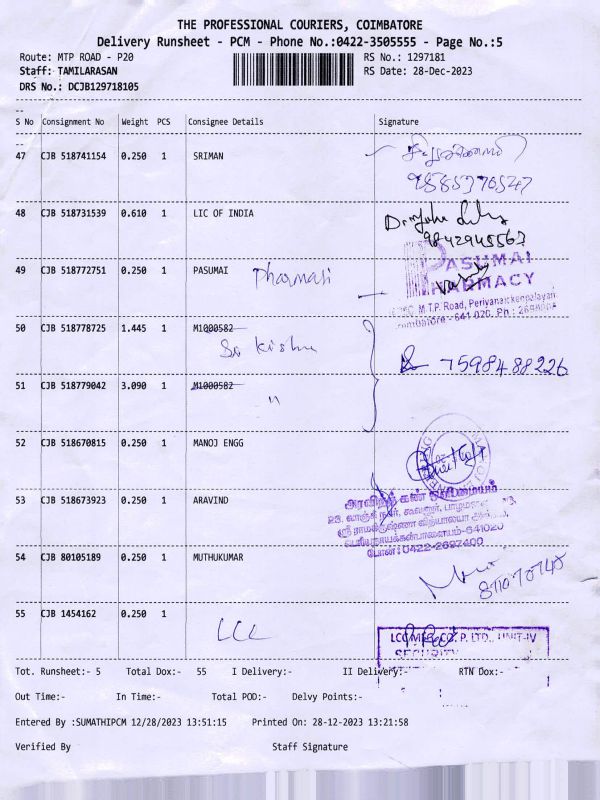 THE PROFESSIONAL COURIERS, COIMBATORE
Delivery Runsheet - PCM - Phone No.:0422-3505555 - Page No.:5
Route: MTP ROAD - P20 RS No.: 1297181
Staff: TAMILARASAN RS Date: 28-Dec-2023
DRS No.: DCJB129718105
S No Consignment No Weight PCS Consignee Details Signature
47 CJB 518741154 0.250 1 SRIMAN
9585376547
48 CJB 518731539 0.610 1 LIC OF INDIA
9842945563
49 CJB 518772751 0.250 1 PASUMAI Pharmasi
PASUMAI
PHARMACY
M.T.P. Road, Periyanaickenpalayam
Coimbatore - 641 020. Ph :
50 CJB 518778725 1.445 1 M1000582
7598488226
51 CJB 518779042 3.090 1 M1000582
"
52 CJB 518670815 0.250 1 MANOJ ENGG
53 CJB 518673923 0.250 1 ARAVIND
அரவிந்த் கண்
ஸ்ரீ ராமகிருஷ்ணா வித்யாலயா
பெரியநாயக்கன்பாளையம்-641020
போன்: 0422-2697400
54 CJB 80105189 0.250 1 MUTHUKUMAR
55 CJB 1454162 0.250 1 LCC
UNIT-IV
SECURITY
Tot. Runsheet:- 5 Total Dox:- 55 I Delivery:- II Delivery:- RTN Dox:-
Out Time:- In Time:- Total POD:- Delvy Points:-
Entered By :SUMATHIPCM 12/28/2023 13:51:15 Printed On: 28-12-2023 13:21:58
Verified By Staff Signature